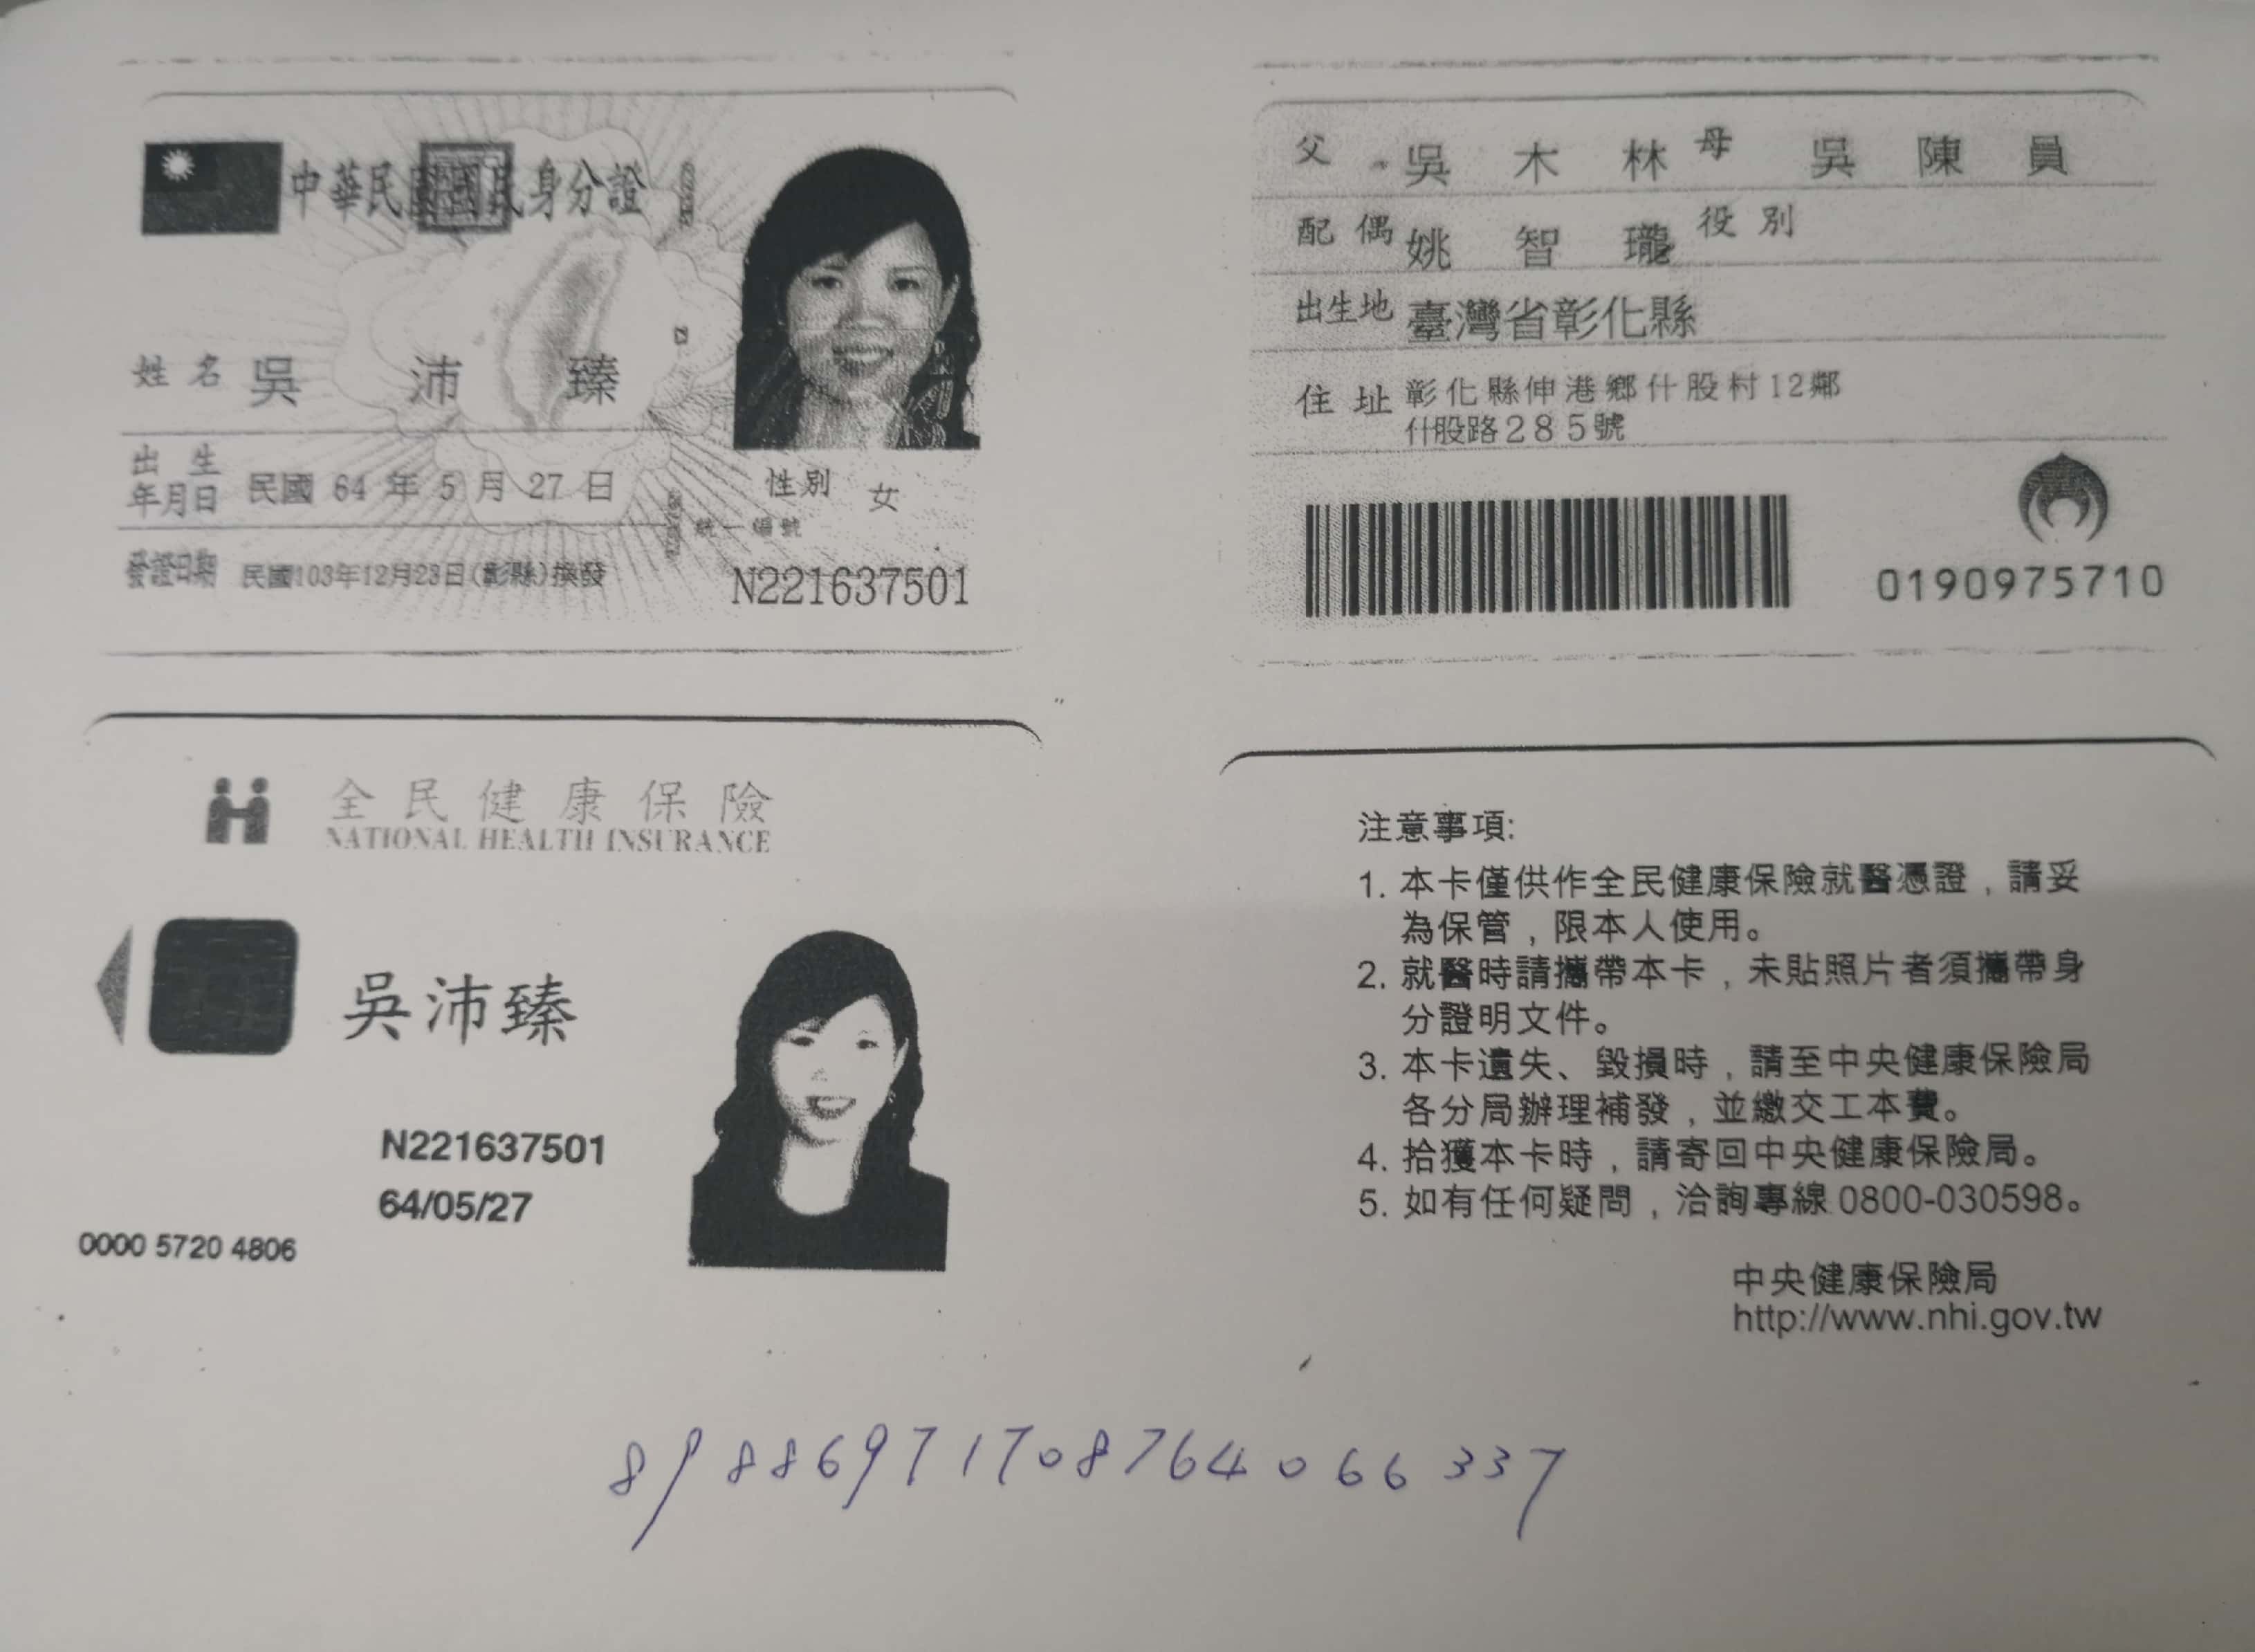 中華民國國民身分證
姓名 吳沛臻
出生年月日 民國 64 年 5 月 27 日
性別 女
統一編號
發證日期 民國103年12月23日(彰縣)換發
N221637501
父 吳木林 母 吳陳員
配偶 姚智瓏 役別
出生地 臺灣省彰化縣
住址 彰化縣伸港鄉什股村12鄰
什股路285號
0190975710
全民健康保險
NATIONAL HEALTH INSURANCE
吳沛臻
N221637501
64/05/27
0000 5720 4806
注意事項:
1. 本卡僅供作全民健康保險就醫憑證，請妥
為保管，限本人使用。
2. 就醫時請攜帶本卡，未貼照片者須攜帶身
分證明文件。
3. 本卡遺失、毀損時，請至中央健康保險局
各分局辦理補發，並繳交工本費。
4. 拾獲本卡時，請寄回中央健康保險局。
5. 如有任何疑問，洽詢專線 0800-030598。
中央健康保險局
http://www.nhi.gov.tw
8988697170876406 6337